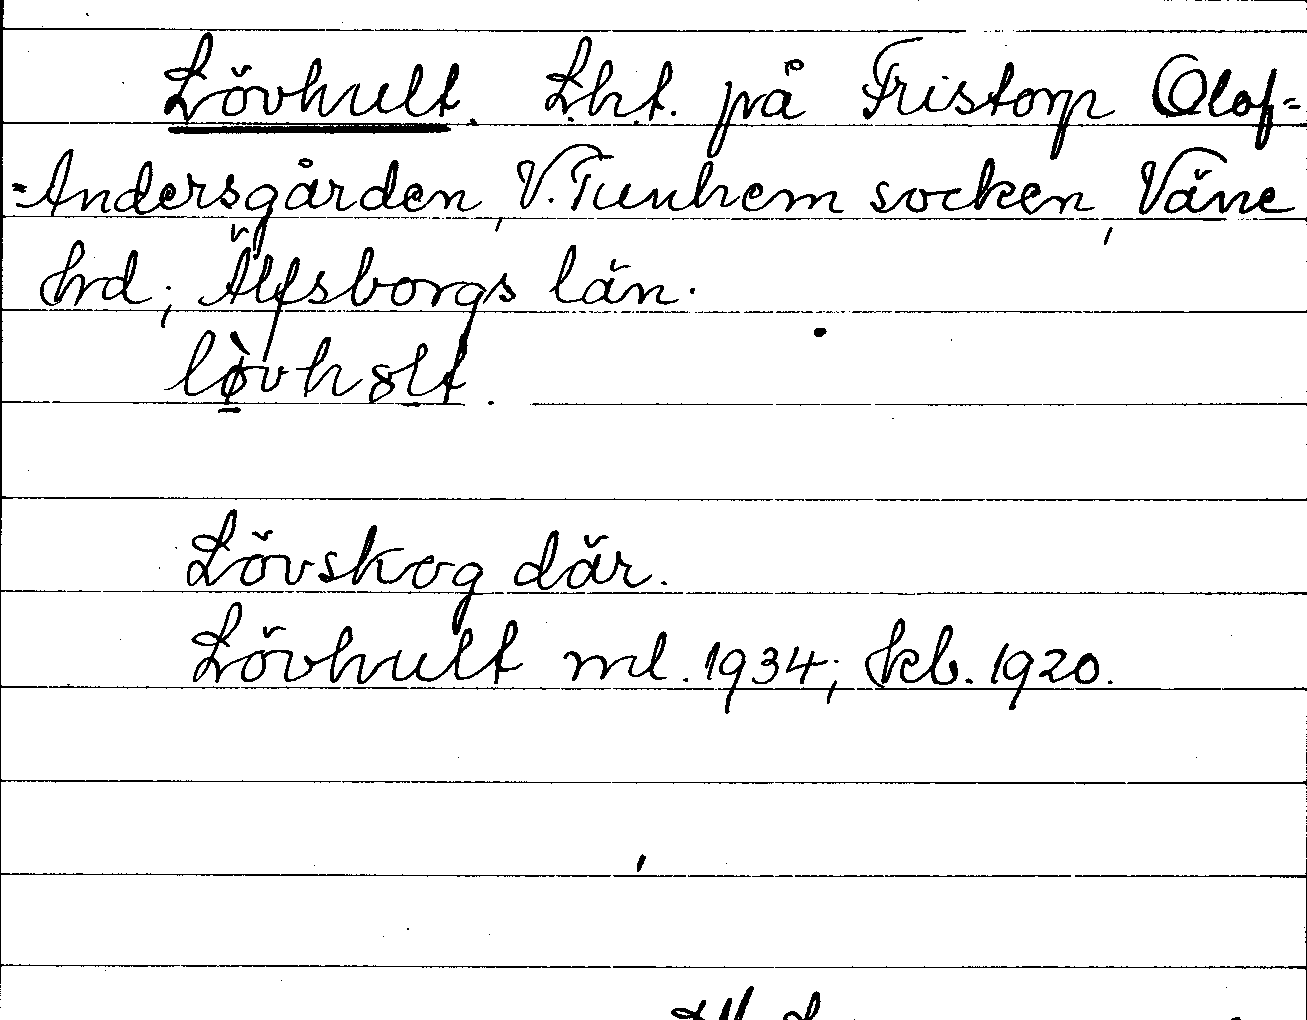 Lövhult. L.h.t. på Fristorp Olof=
=Andersgården, V. Tunhem socken, Väne
hrd; Älfsborgs län.
lø̀vhält.
Lövskog där.
Lövhult ml. 1934; kb. 1920.